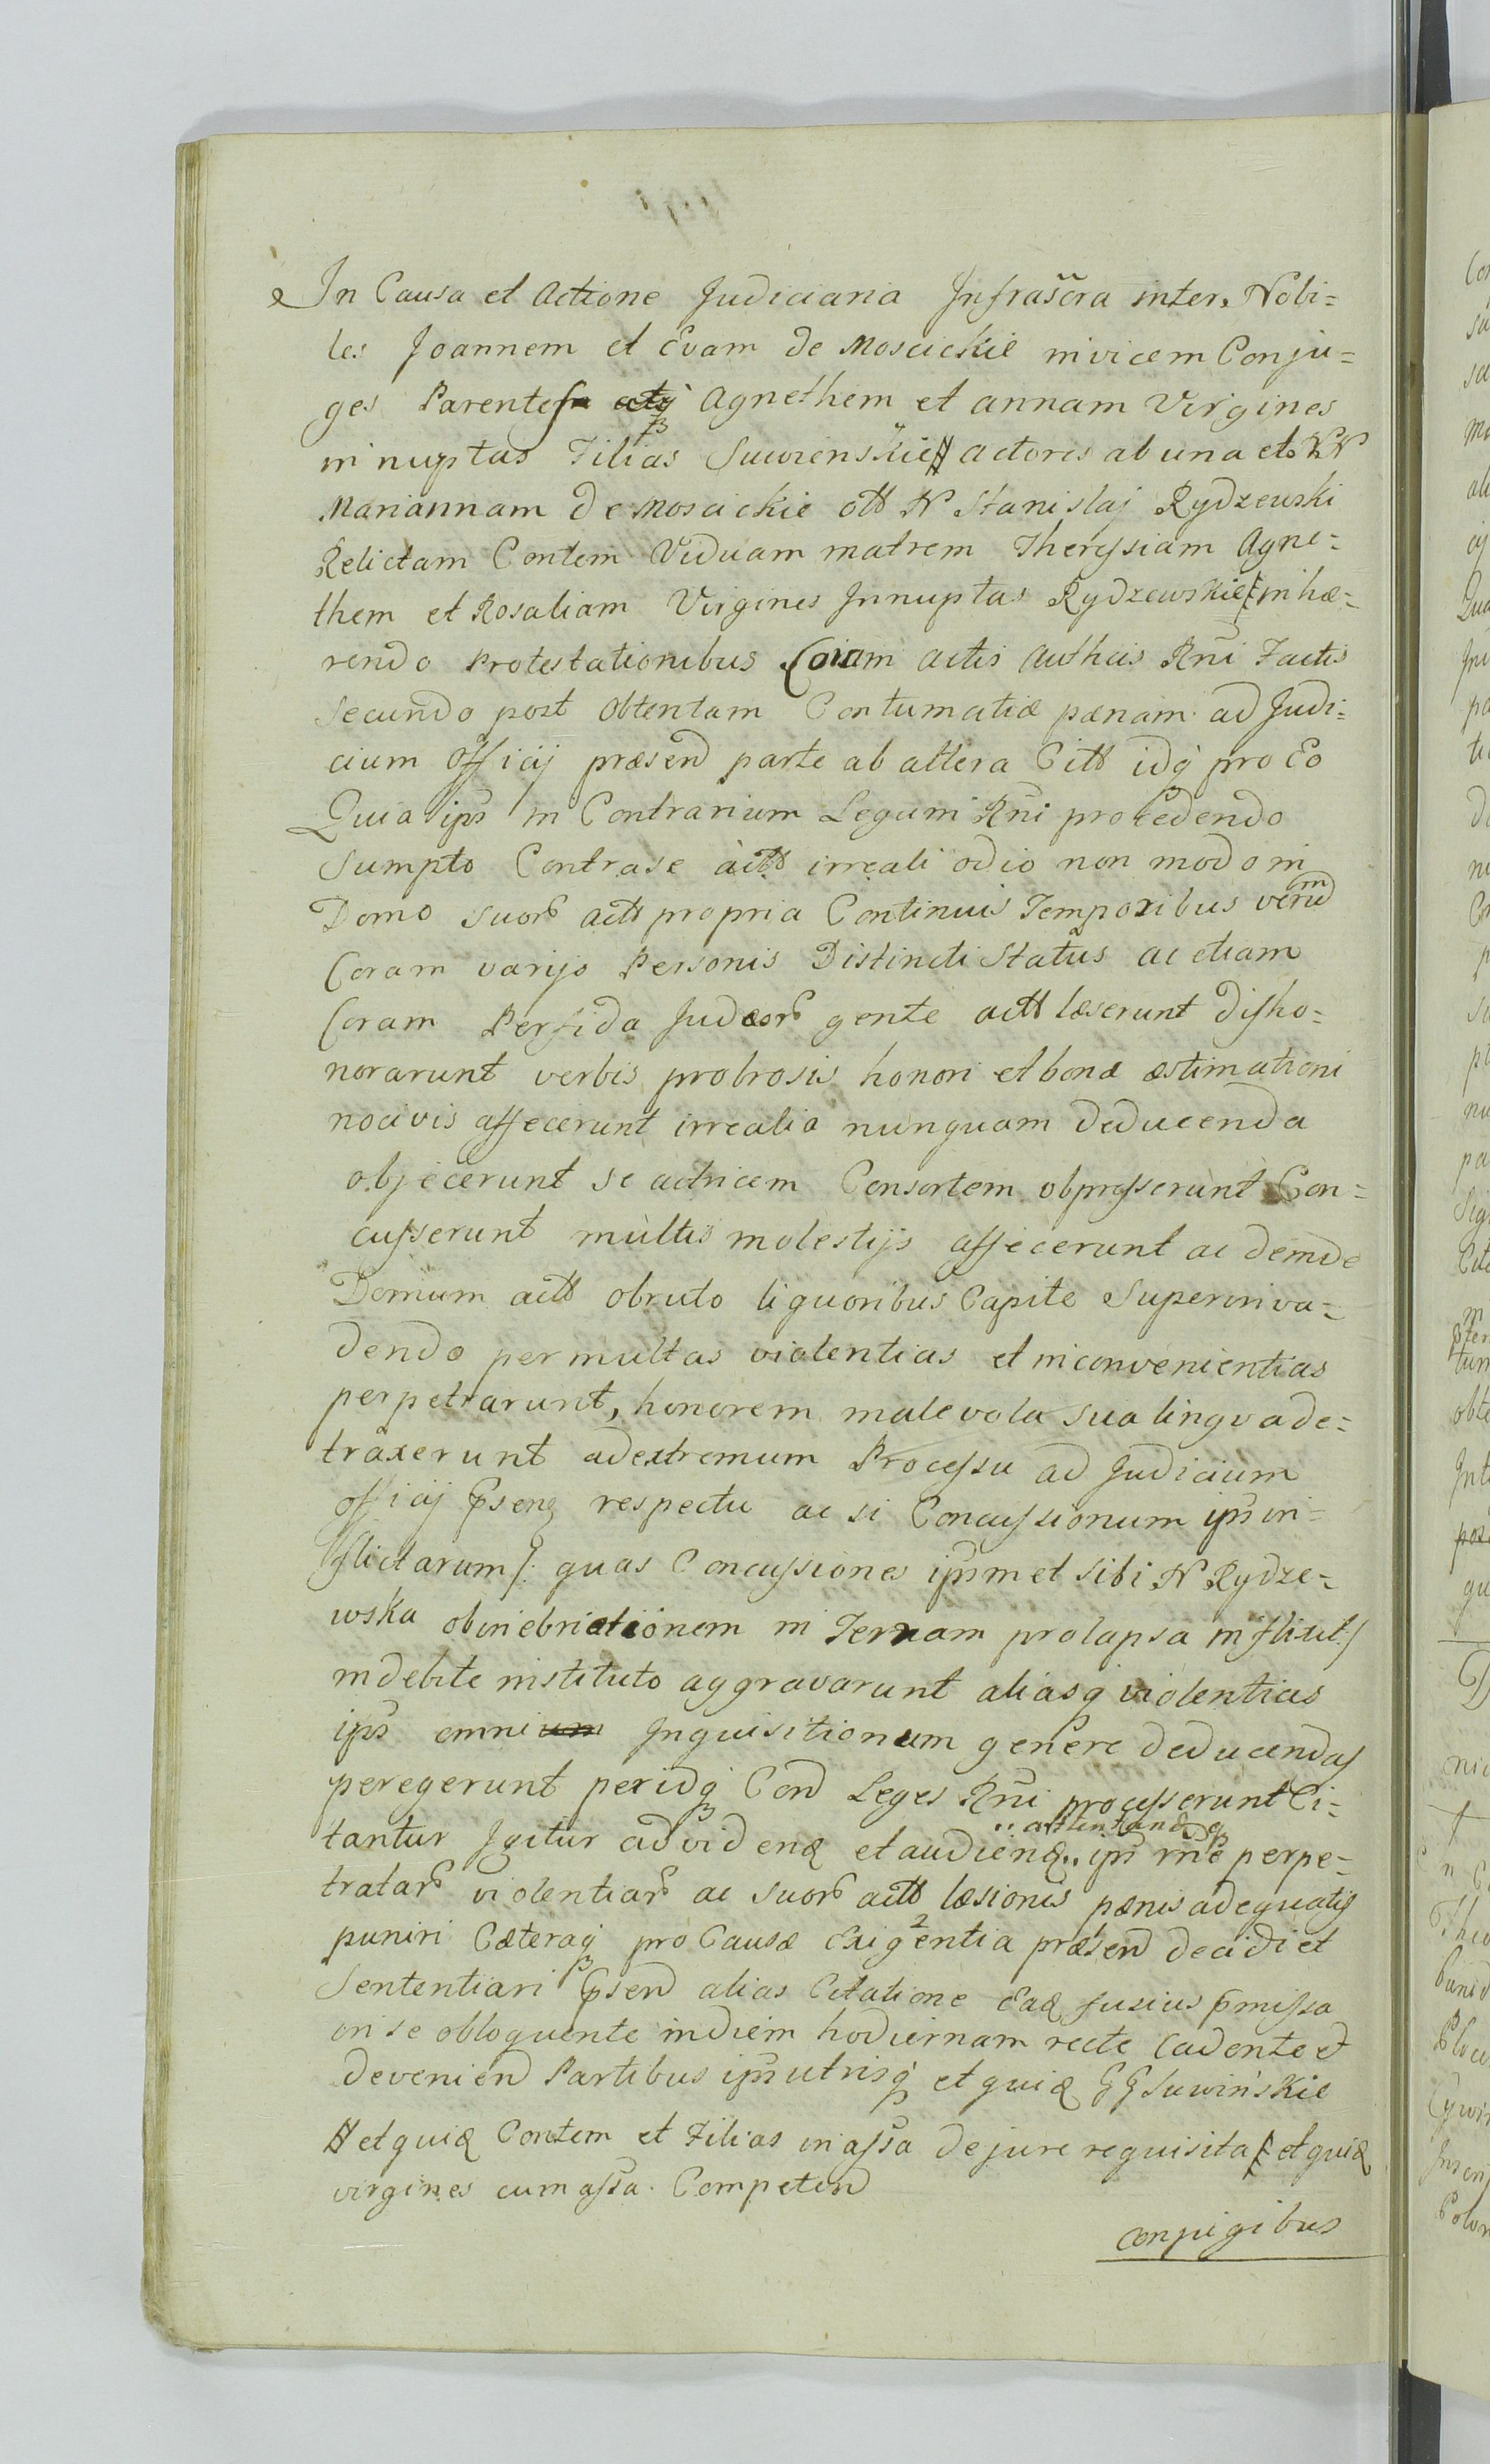 In Causa et Actione Judiciaria Infrascra inter Nobi=
les Joannem et Evam de Moscickie invicem Conju=
ges Parentes Agnethem et Annam Virgines
innuptas Filias Suwienskie Actores ab una et NN
Mariannam de Moscickie ott N Stanislaj Rydzewski
Relictam Contem Viduam matrem Theresiam Agne=
them et Rosaliam Virgines Innuptas Rydzewskie inhæ=
rendo Protestationibus Coram actis Authcis Rni Factis
Secundo post obtentam Contumatiæ pænam ad Judi=
cium Officij præsend parte ab altera Citt idq pro Eo
Quia ips in Contrarium Legum Rni procedendo
Sumpto Contra se actt irreali odio non modo in
Domo suor actt propria Continuis Temporibus verum
Coram varijs Personis Distincti Status ac etiam
Coram Perfida Judæor gente actt læserunt disho=
norarunt verbis probrosis honori et bonæ æstimationi
nocivis affecerunt irrealia nunquam deducenda
objecerunt se actricem Consortem obpresserunt Con=
cusserunt multis molestijs affecerunt ac demde
Domum actt obruto liquoribus Capite Superinva=
dendo permultas violentias et inconvenientias
perpetrarunt, honorem malevola sua lingva de=
traxerunt ad extremum Processu ad Judicium
officij psen respectu ac si Concussionum ips in=
flictarum /: quas Concussiones ipsmet sibi N Rydze=
wska ob inebriationem in Terram prolapsa inflixit :/
indebite instituto aggravarunt aliasq violentias
ips omni Inquisitionum genere deducendas
peregerunt per idq Con Leges Rni processerunt Ci=
tantur Igitur ad viden et audien ips rne perpe=
tratar violentiar ac suor actt læsionis pænis adequatis
puniri Cæteraq pro Causæ Exigentia præsen decidi et
Sententiari psen alias Citatione Eaq fusius pmissa
in se obloquente in diem hodiernam recte Cadente et
devenien Partibus ips utrisq et quiq GG Suwinskie
et quiq Contem et Filias in assa de jure requisita et quiq
virgines cum assa Competen
conjugibus